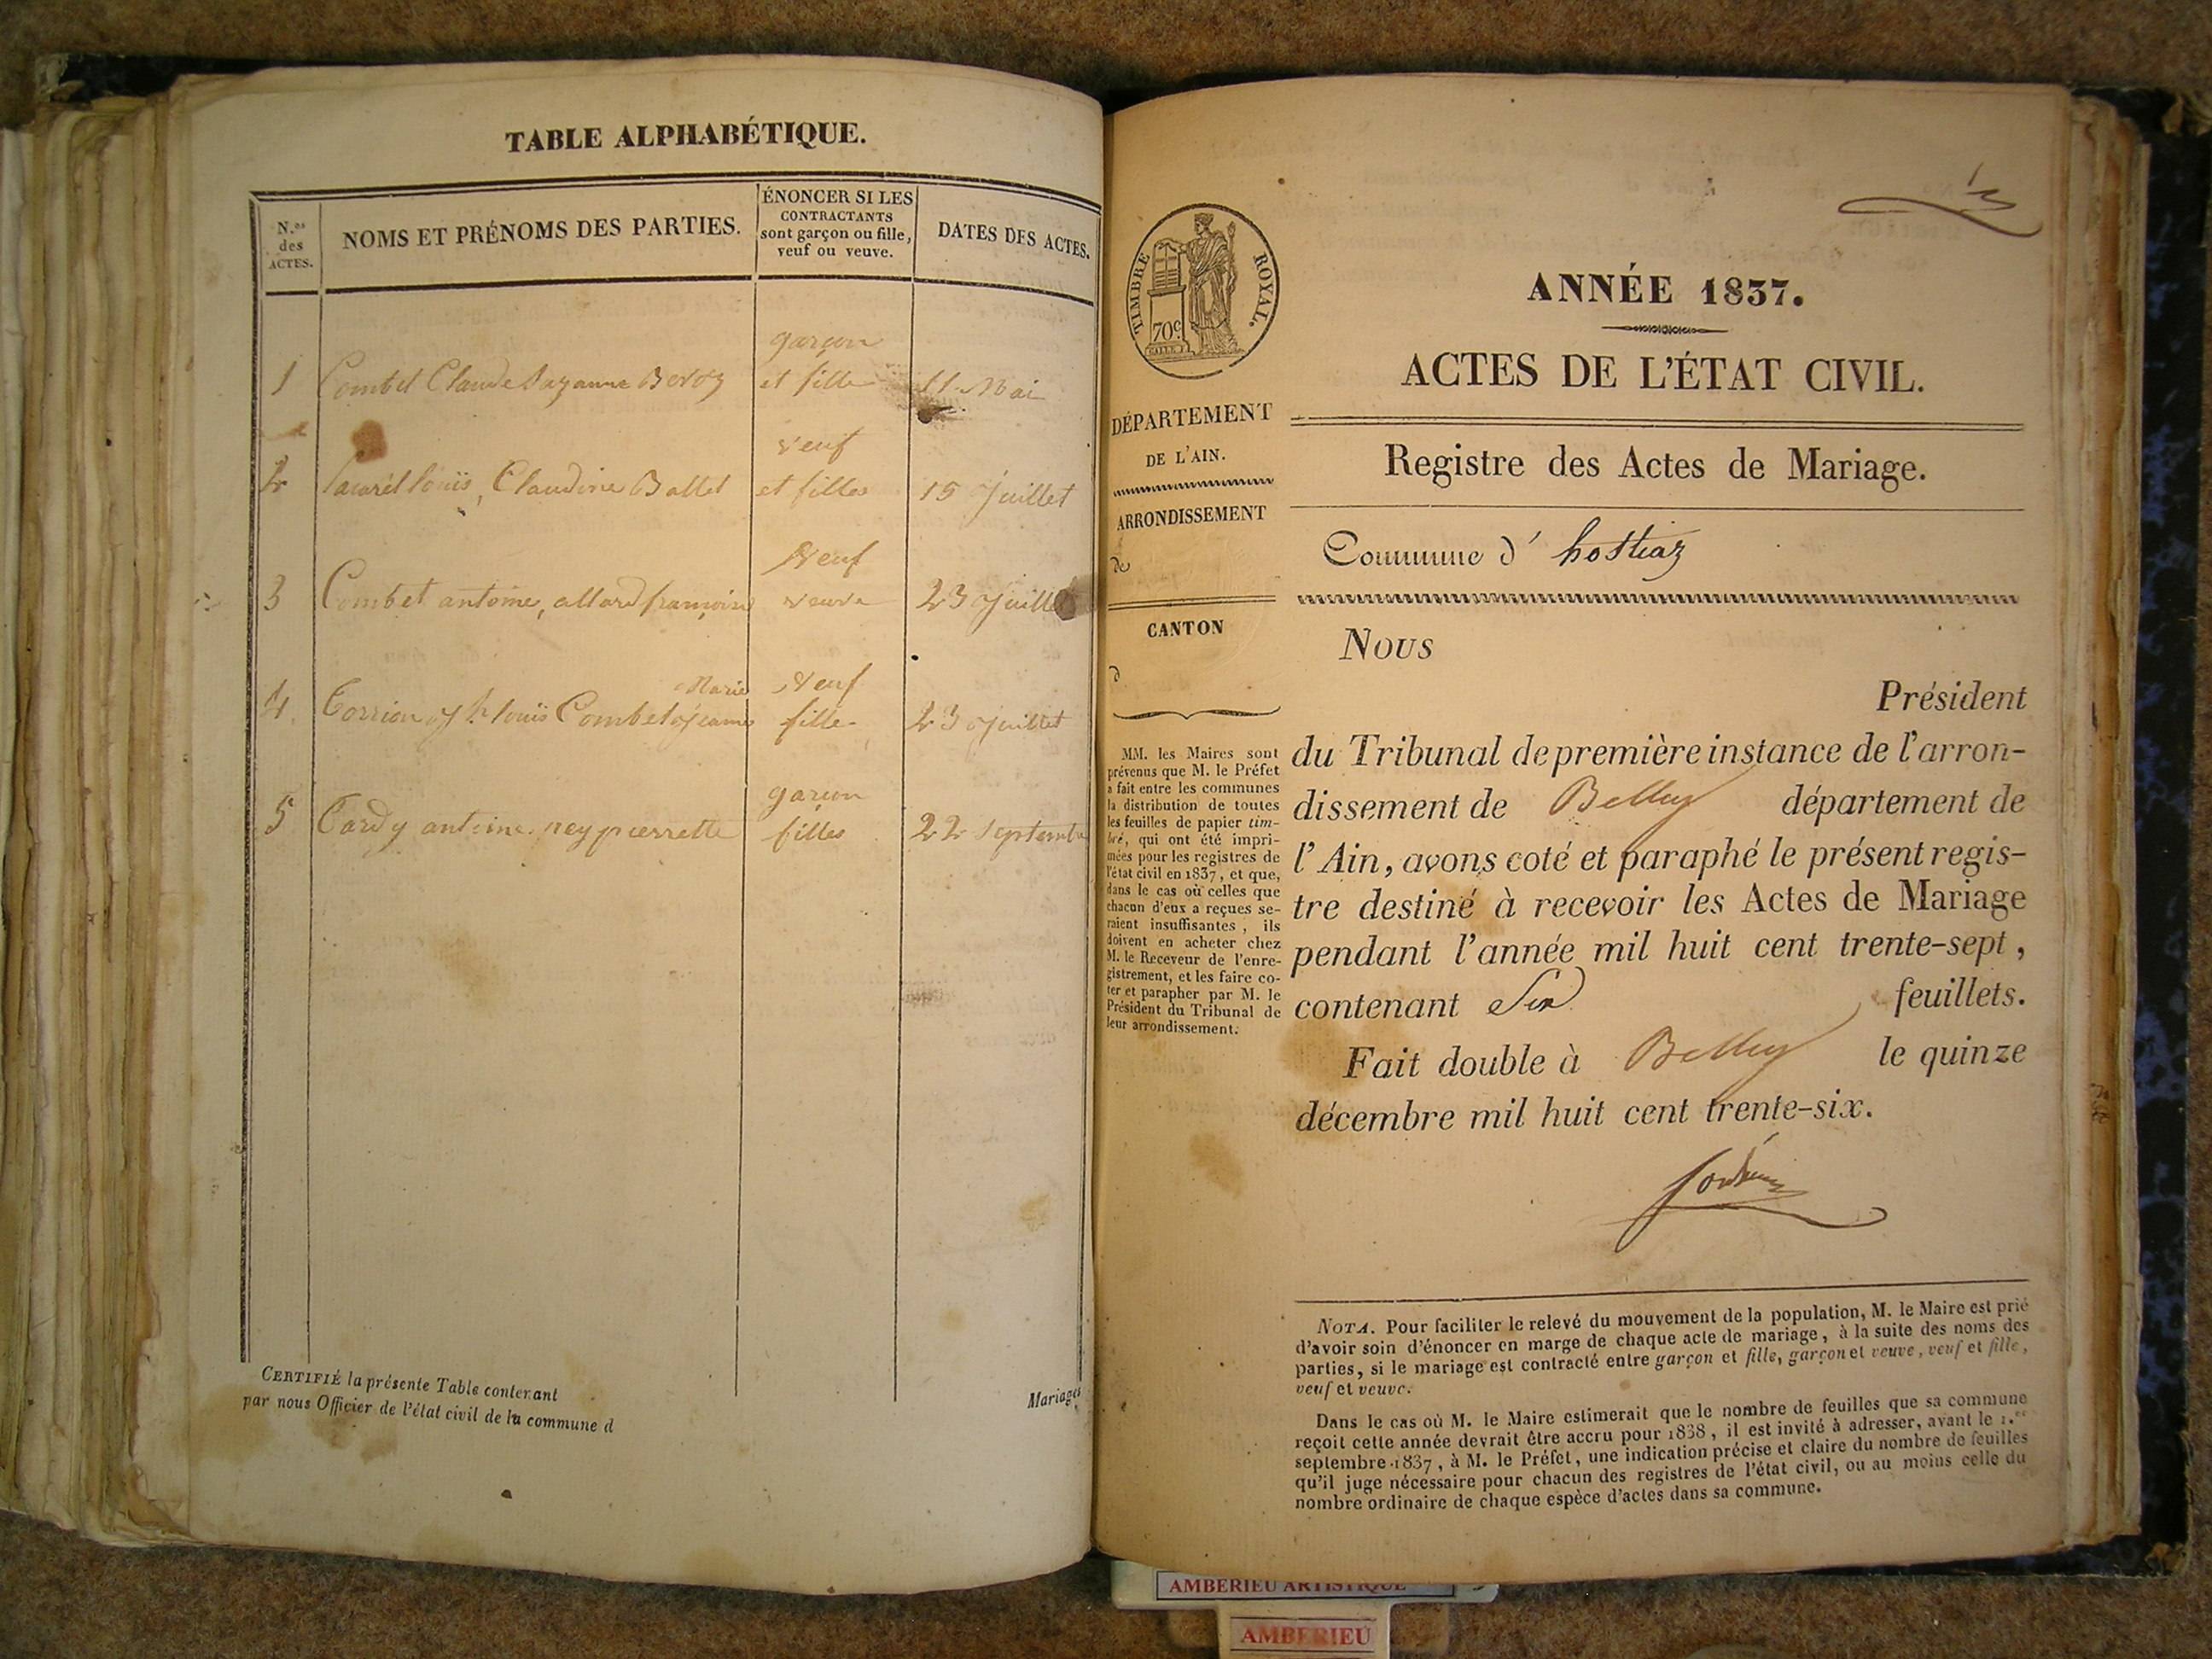 TABLE ALPHABÉTIQUE.
N.os des ACTES.
NOMS ET PRÉNOMS DES PARTIES.
ÉNONCER SI LES
CONTRACTANTS
sont garçon ou fille,
veuf ou veuve.
DATES DES ACTES.
garçon
1 Combet Claude Suzanne Beroz et fille 11 Mai
veuf
2 louis, Claudine Ballet et filles 15 Juillet
veuf
3 Combet antoine, allard françoise veuve 23 Juillet
Marie veuf
4 louis Combet jeanne fille 23 juillet
garçon
5 Tardy antoine. ney pierrette filles 22 septembre
CERTIFIÉ la présente Table contenant
par nous Officier de l'état civil de la commune d
Mariages
TIMBRE ROYAL.
70c
ANNÉE 1837.
ACTES DE L'ÉTAT CIVIL.
DÉPARTEMENT
DE L'AIN.
ARRONDISSEMENT
de
CANTON
d
MM. les Maires sont
prévenus que M. le Préfet
a fait entre les communes
la distribution de toutes
les feuilles de papier tim-
bré, qui ont été impri-
mées pour les registres de
l'état civil en 1837, et que,
dans le cas où celles que
chacun d'eux a reçues se-
raient insuffisantes, ils
doivent en acheter chez
M. le Receveur de l'enre-
gistrement, et les faire co-
ter et parapher par M. le
Président du Tribunal de
leur arrondissement.
Registre des Actes de Mariage.
Commune d' hostiaz
Nous
Président
du Tribunal de première instance de l'arron-
dissement de Belley département de
l'Ain, avons coté et paraphé le présent regis-
tre destiné à recevoir les Actes de Mariage
pendant l'année mil huit cent trente-sept,
contenant Six feuillets.
Fait double à Belley le quinze
décembre mil huit cent trente-six.
NOTA. Pour faciliter le relevé du mouvement de la population, M. le Maire est prié
d'avoir soin d'énoncer en marge de chaque acte de mariage, à la suite des noms des
parties, si le mariage est contracté entre garçon et fille, garçon et veuve, veuf et fille,
veuf et veuve.
Dans le cas où M. le Maire estimerait que le nombre de feuilles que sa commune
reçoit cette année devrait être accru pour 1838, il est invité à adresser, avant le 1.er
septembre 1837, à M. le Préfet, une indication précise et claire du nombre de feuilles
qu'il juge nécessaire pour chacun des registres de l'état civil, ou au moins celle du
nombre ordinaire de chaque espèce d'actes dans sa commune.
AMBERIEU ARTISTIQUE
AMBERIEU